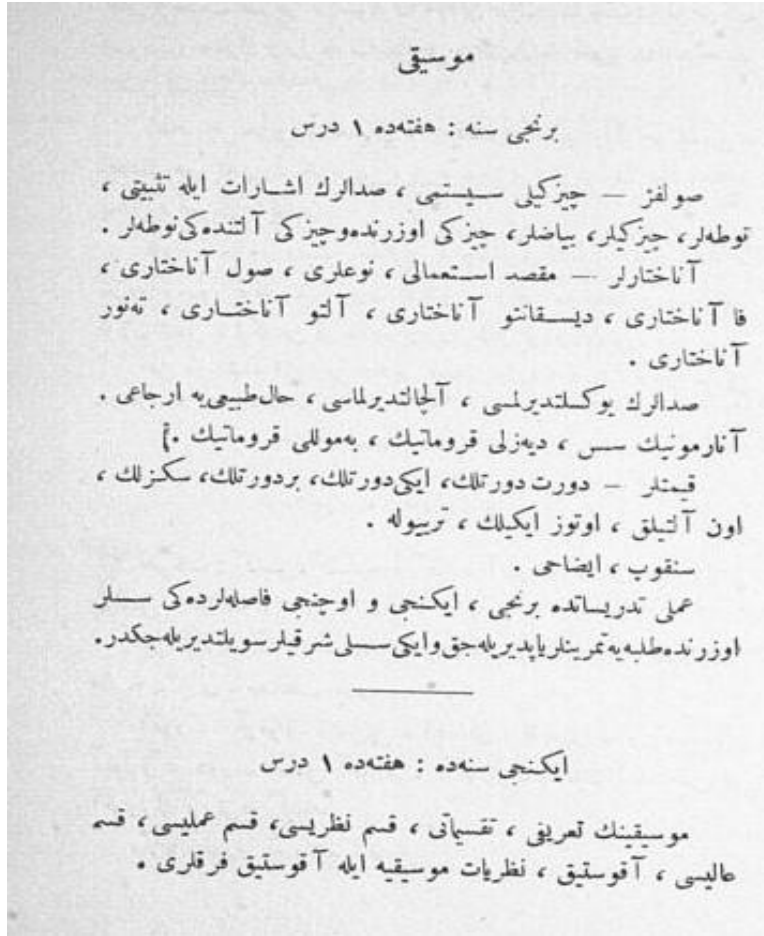 موسيقى
برنجى سنه : هفته‌ده ١ درس
صولفز — چيزكيلى سيستمى ، صدالرك اشارات ايله تثبيتى ،
نوطه‌لر، چيزكيلر، بياضلر، چيزكى اوزرنده‌وچيزكى آلتنده‌كى‌نوطه‌لر .
آناختارلر — مقصد استعمالى ، نوعلرى ، صول آناختارى ،
فا آناختارى ، ديسقانتو آناختارى ، آلتو آناختارى ، ته‌نور
آناختارى .
صدالرك يوكسلتديرلمسى ، آلچالتديرلماسى ، حال‌طبيعى‌يه ارجاعى .
آنارمونيك سس ، ديه‌زلى قروماتيك ، به‌موللى قروماتيك .
قيمتلر — دورت دورتلك، ايكى‌دورتلك، بردورتلك، سكزلك ،
اون آلتيلق ، اوتوز ايكيلك ، تريبوله .
سنقوپ ، ايضاحى .
عملى تدريساتده برنجى ، ايكنجى و اوچنجى فاصله‌لرده‌كى سسلر
اوزرنده‌طلبه‌يه‌تمرينلرياپديريله‌جق‌وايكى‌سسلى‌شرقيلرسويلتديريله‌جكدر.
ايكنجى سنه‌ده : هفته‌ده ١ درس
موسيقينك تعريفى ، تقسيماتى ، قسم نظريسى، قسم عمليسى ، قسم
عاليسى ، آقوستيق ، نظريات موسيقيه ايله آقوستيق فرقلرى .